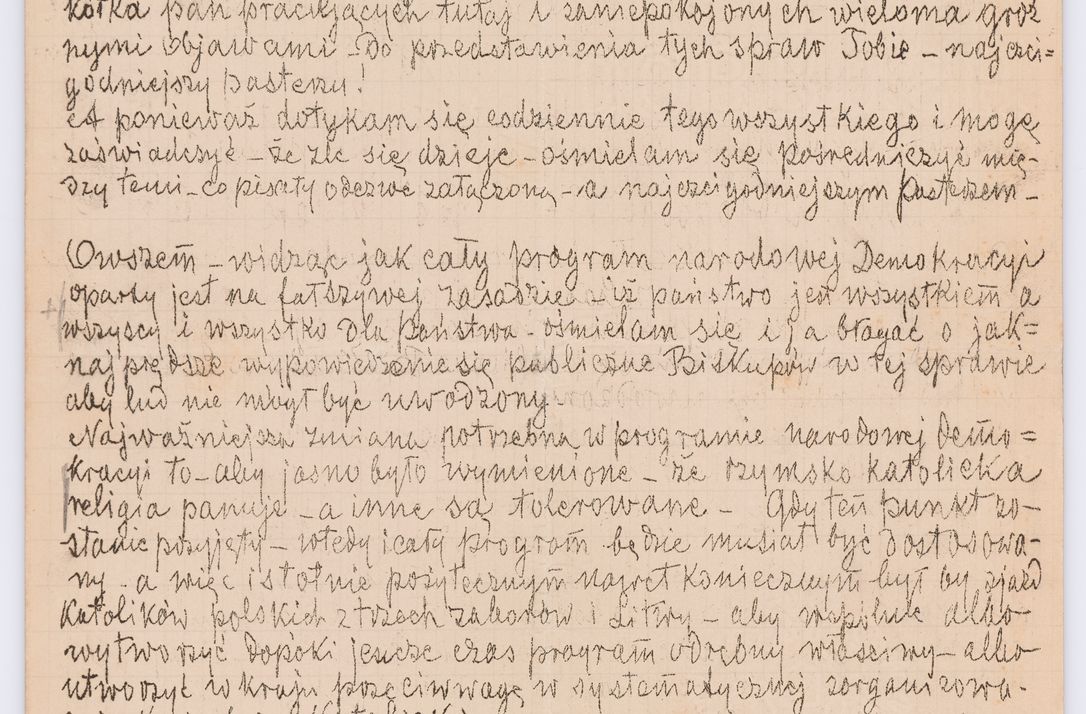 kółka pań pracujących tutaj i zaniepokojonych wieloma groź
nymi objawami – Do przedstawienia tych spraw Tobie – najczci=
godniejszy pasterzu!
A ponieważ dotykam się codziennie tego wszystkiego i mogę
zaświadczyć – że źle się dzieje – ośmielam się pośredniczyć mię-
dzy temi – co pisały odezwę załączoną – a najczcigodniejszym pasterzem –
Owszem – widząc jak cały program narodowej Demokracyi
oparty jest na fałszywej zasadzie – iż państwo jest wszystkiem a
wszyscy i wszystko dla państwa – ośmielam się i ja błagać o jak=
najprędsze wypowiedzenie się publiczne Biskupów w tej sprawie
aby lud nie mógł być uwodzony.
Najważniejsza zmiana potrzebna w programie narodowej demo=
kracyi to – aby jasno było wymienione – że rzymsko katolicka
religia panuje – a inne są tolerowane – Gdy ten punkt zo-
stanie przyjęty – wtedy i cały program będzie musiał być dostosowa-
ny – a więc istotnie pożytecznym nawet koniecznym był by zjazd
Katolików polskich z trzech zaborów i Litwy – aby wspólnie albo
wytworzyć dopóki jeszcze czas program odrębny właściwy – albo
utworzyć w kraju przeciwwagę w systematycznej zorganizowa-